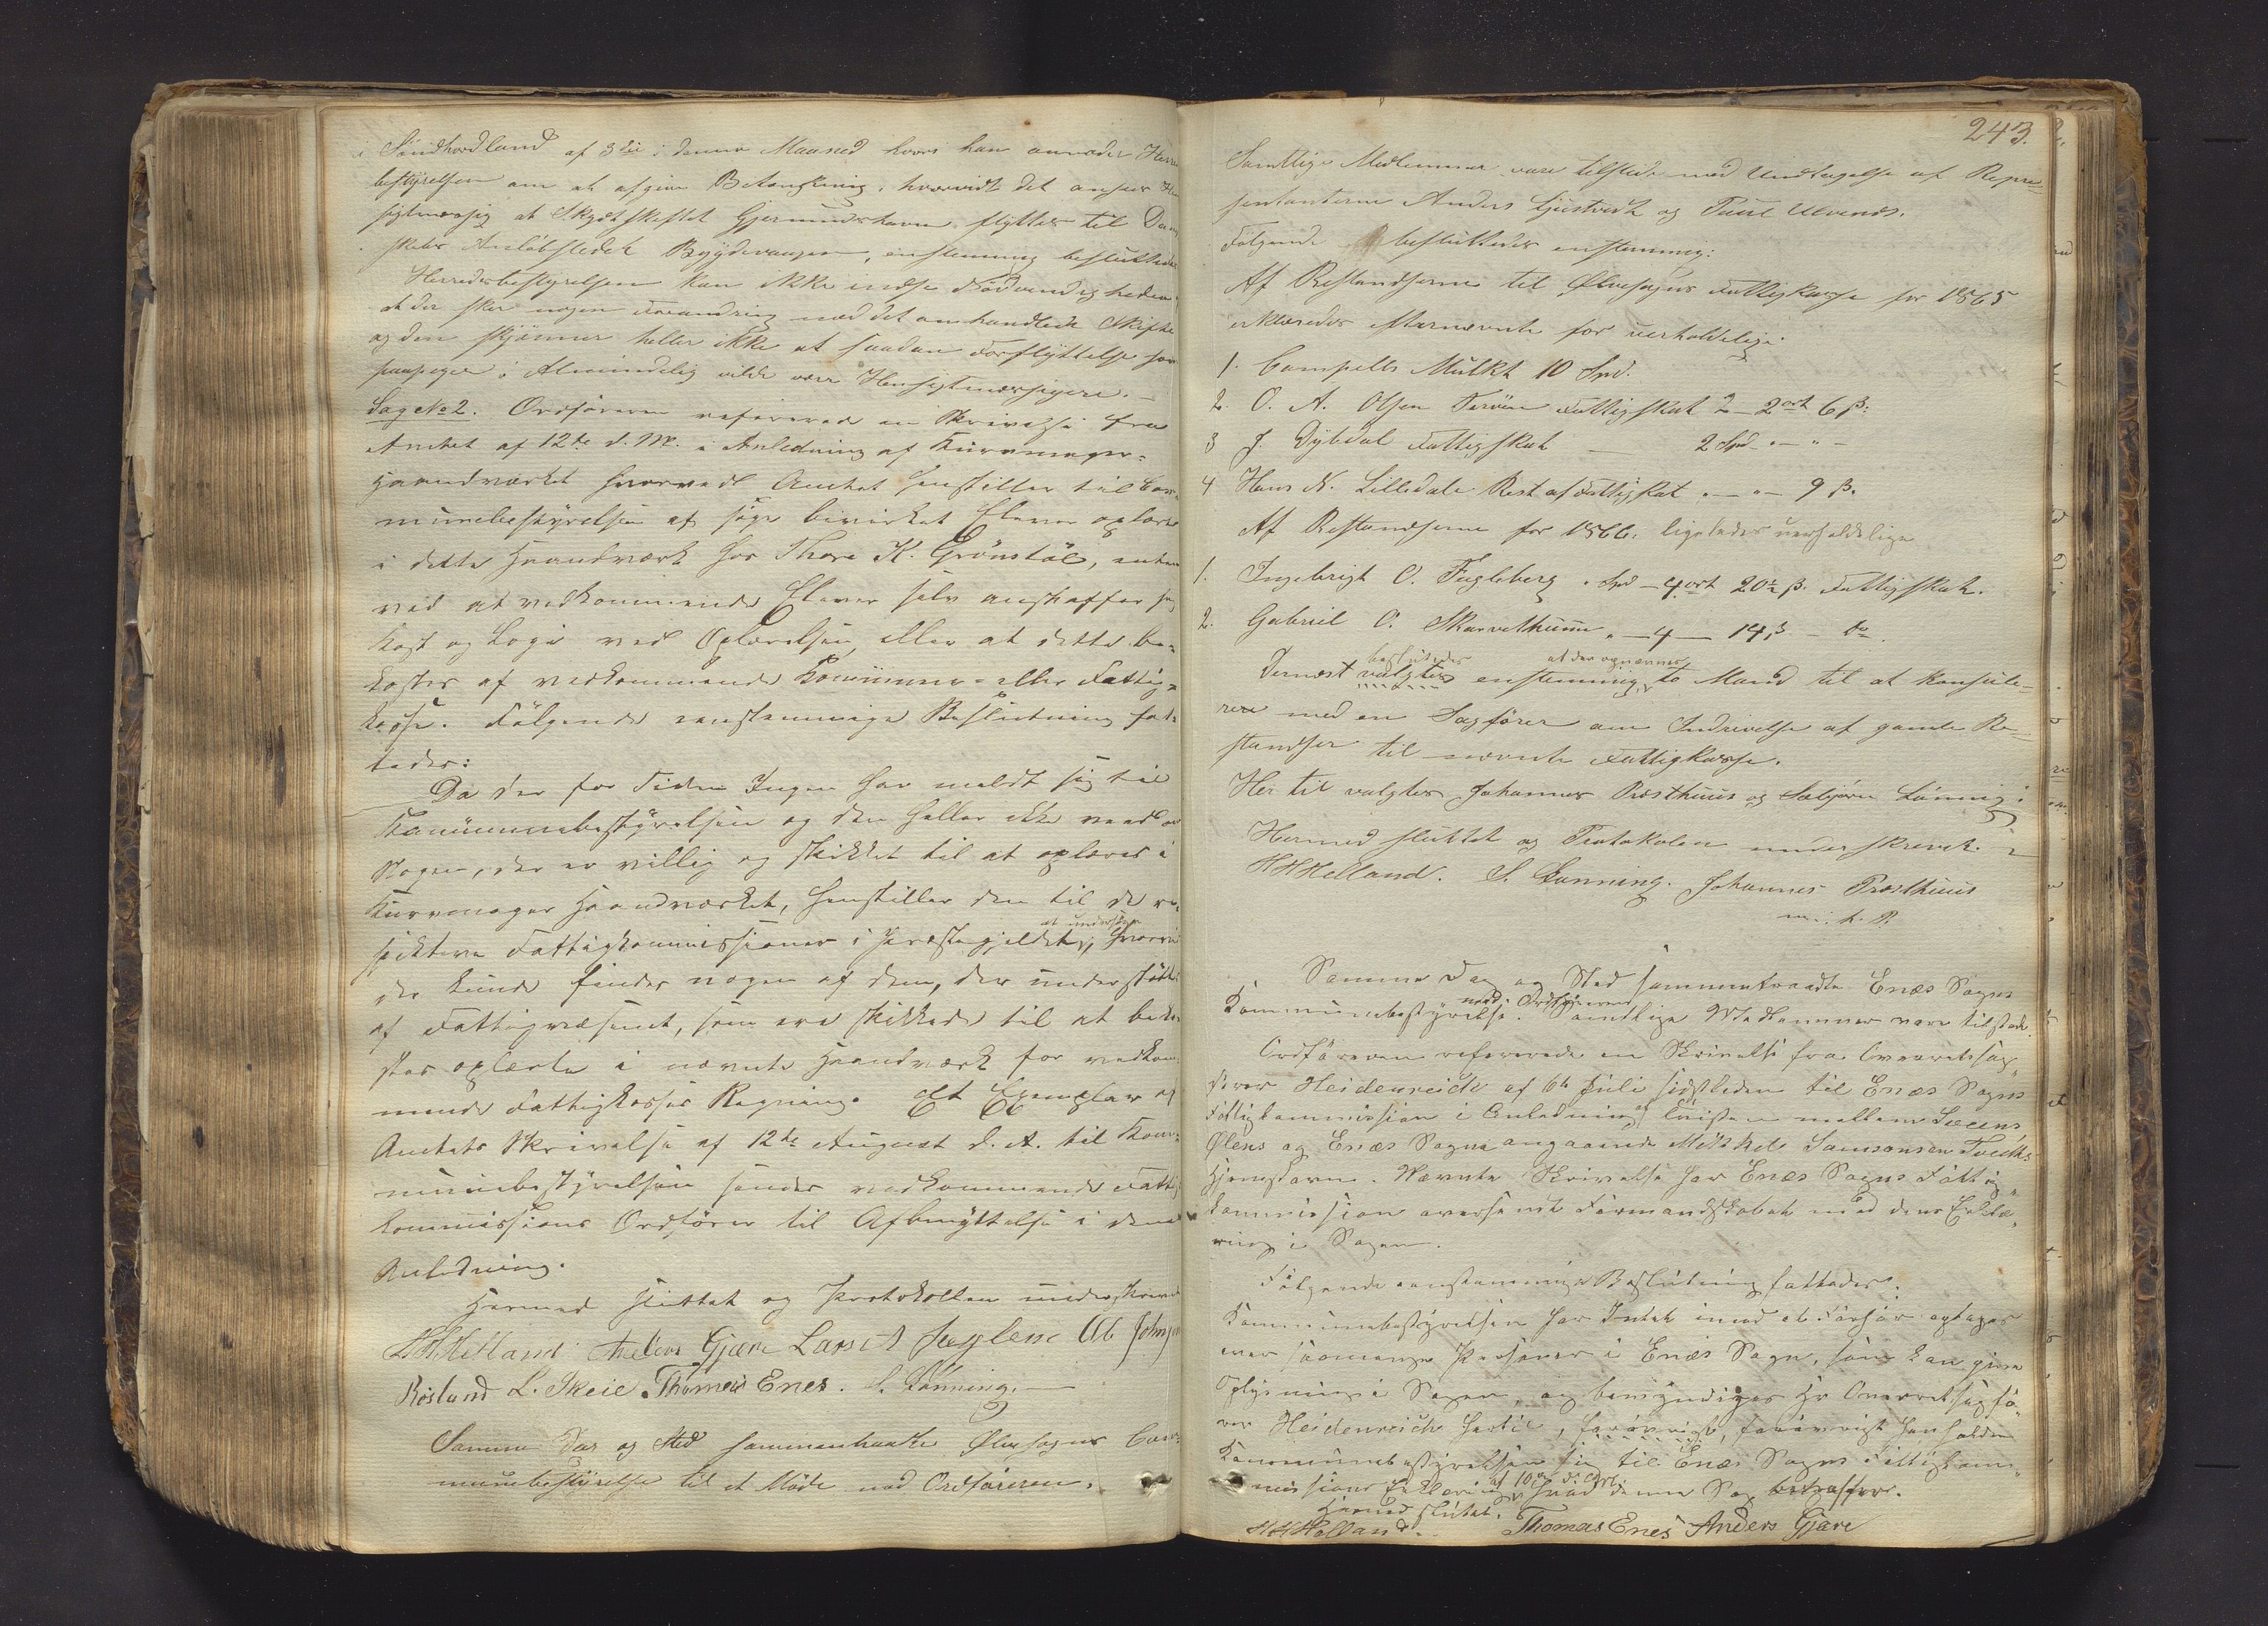 i Söndhordland af 3die i denne Maaned hvori han anmoder Herreds
bestyrelsen om at afgive Betænkning, hvorvidt det ansees Hen
sigtmæssig at Skydsskiftet Gjermundshavn flyttes til Dam
skibs Anløbstedet Bygdevaagen, eenstemmig besluttedes
Herredsbestyrelsen kan ikke indse Nødvendigheden
at der sker nogen Forandring med det omhandlede Skifte
og den skjønner heller ikke at saadan Forflyttelse for
passager i Almindelig vilde være Hensigtmæssigere. —
Sag No 2. Ordføreren refererede en Skrivelse fra
Amtet af 12te d. M. i Anledning af Kurvmager-
Haandværket hvorved Amtet henstiller til Com
munebestyrelsen at søge bevirket Elever oplært
i dette Haandværk hos Thore K. Grönstöl, enten
ved at vedkommende Elever selv anskaffer sig
Kost og Logi ved Oplærelsen, eller at dette be-
kostes af vedkommende Kommune- eller Fattig-
kasse. Følgende eenstemmige Beslutning fat-
tedes:
Da der for Tiden Ingen har meldt sig til
Kommunebestyrelsen og den heller ikke veed om
Nogen, der er villig og skikket til at oplæres i
Kurvmager Haandværket, henstiller den til de re-
spektive Fattigkommissioner i Præstegjeldet, at undersøge hvorvidt
der kunde findes nogen af dem, der understøttes
af Fattigvæsenet, som ere skikkede til at beko-
stes oplærte i nævnte Haandværk for vedkom-
mende Fattigkasses Regning. Et Exemplar af
Amtets Skrivelse af 12te August d. A. til Kom-
munebestyrelsen sendes vedkommende Fattig
kommissions Ordfører til Afbenyttelse i denne
Anledning.
Hermed sluttet og Protokollen underskrevet
H. H. Helland Anders Gjære Lars A Fuglene Ole Johnsen
Røsland L. Skeie Thomas Enes. S. Lønning. —
Samme Dag og Sted sammentraadte Ølvesogns Com-
munebestyrelse til et Møde med Ordføreren.
243.
Samtlige Medlemmer vare tilstede med Undtagelse af Repre-
sentanterne Anders Ljustvedt og Poul Ulvenes.
Følgende besluttedes enstemmig:
Af Restandserne til Ølvesogns Fattigkasse for 1865
erklæredes efternævnte for uerholdelige:
1. Campells Mulkt 10 Spd.
2. O. A. Olsen Terøen Fattigskat 2 – 2ort 6 β:
3 J. Dybdal Fattigskat — 2 Spd. " — " –
4 Hans N. Lilledale Rest af Fattigskat " — " — 9 β.
Af Restandserne for 1866. ligeledes uerholdelige
1. Ingebrigt O. Fugleberg " Spd – 4ort 20½ β. Fattigskat.
2. Gabriel O. Skarvethuun " — 4 — 14 β — do.
Dernæst besluttedes valgtes enstemmig, at der opnævnes to Mand til at konsule-
rere med en Sagfører om Inddrivelse af gamle Re-
standser til nævnte Fattigkasse.
Her til valgtes Johannes Præsthuus og Sæbjørn Lønning.
Hermed sluttet og Protokolen underskrevet.
H H Helland. S. Lønning. Johannes Præsthuus
m. i. h. P.
Samme Dag og Sted sammentraadte Enæs Sogns
Kommunebestyrelse med Ordføreren. Samtlige Medlemmer vare tilstede.
Ordføreren refererede en Skrivelse fra Overretssag-
fører Heidenreich af 6te Juli sidstleden til Enæs Sogns
Fattigkommission i Anledning af Tvisten mellem Skeens,
Ølens og Enæs Sogne angaaende Mikkel Samsonsen Tvedts
Hjemstavn. Nævnte Skrivelse har Enæs Sogns Fattig-
kommission oversendt Formandskabet med dens Erklæ-
ring i Sagen.
Følgende eenstemmige Beslutning fattedes:
Kommunebestyrelsen har Intet imod at Forhør optages
over saamange Personer i Enæs Sogn, som kan give
Oplysning i Sagen, og bemyndiges Hr Overretssagfø-
rer Heidenreich hertil, forøvrigt, forøvrigt henholder
Kommunebestyrelsen sig til Enæs Sogns Fattigkom-
missions Erklæring af 10de d. M. hvad denne Sag betræffer.
Hermed sluttet.
H H Helland. Thomas Enes Anders Gjære